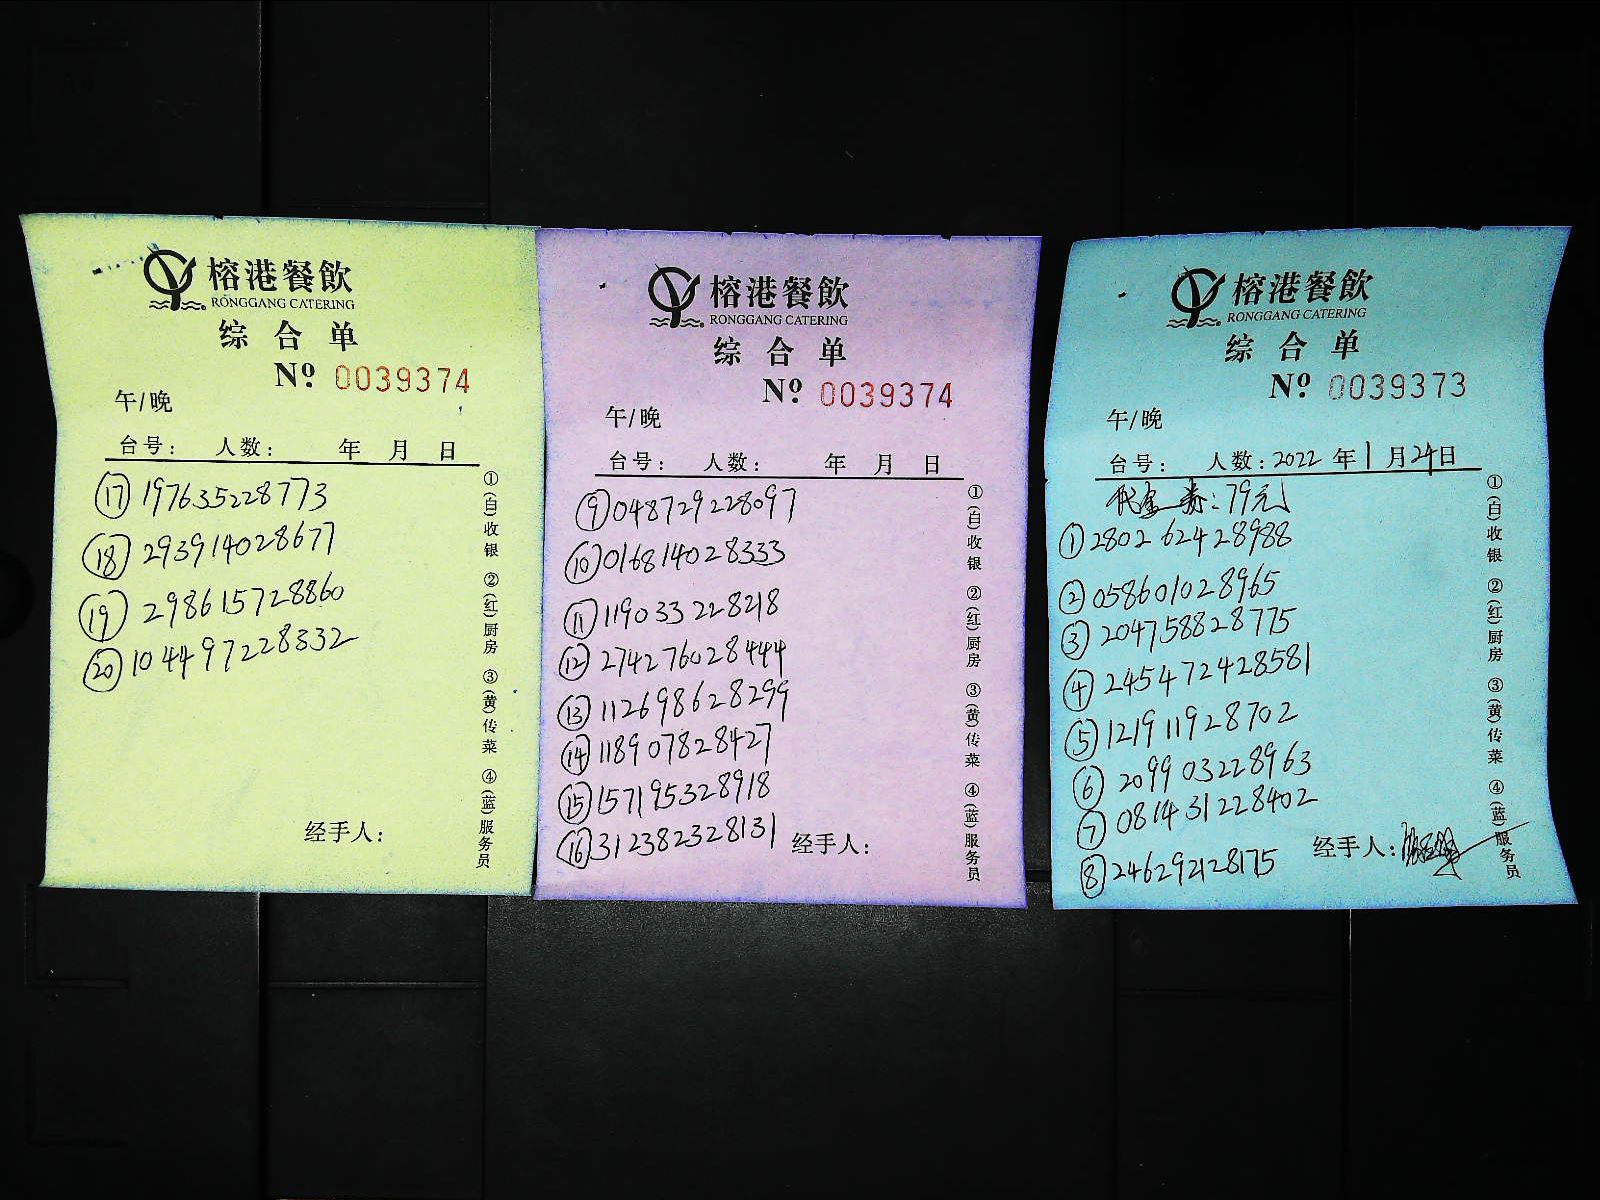 榕港餐飲
RONGGANG CATERING
综合单
Nº 0039374
午/晚
台号： 人数： 年 月 日
⑰ 197635228773
⑱ 293914028677
⑲ 298615728860
⑳ 104497228332
经手人：
①(自)收银 ②(红)厨房 ③(黄)传菜 ④(蓝)服务员
榕港餐飲
RONGGANG CATERING
综合单
Nº 0039374
午/晚
台号： 人数： 年 月 日
⑨ 048729228097
⑩ 016814028333
⑪ 119033228218
⑫ 274276028444
⑬ 112698628299
⑭ 118907828427
⑮ 157195328918
⑯ 312382328131
经手人：
①(自)收银 ②(红)厨房 ③(黄)传菜 ④(蓝)服务员
榕港餐飲
RONGGANG CATERING
综合单
Nº 0039373
午/晚
台号： 人数：2022 年 1 月 24日
代金券：79元
① 280262428988
② 058601028965
③ 204758828775
④ 245472428581
⑤ 121911928702
⑥ 209903228963
⑦ 081431228402
⑧ 246292128175
经手人：
①(自)收银 ②(红)厨房 ③(黄)传菜 ④(蓝)服务员